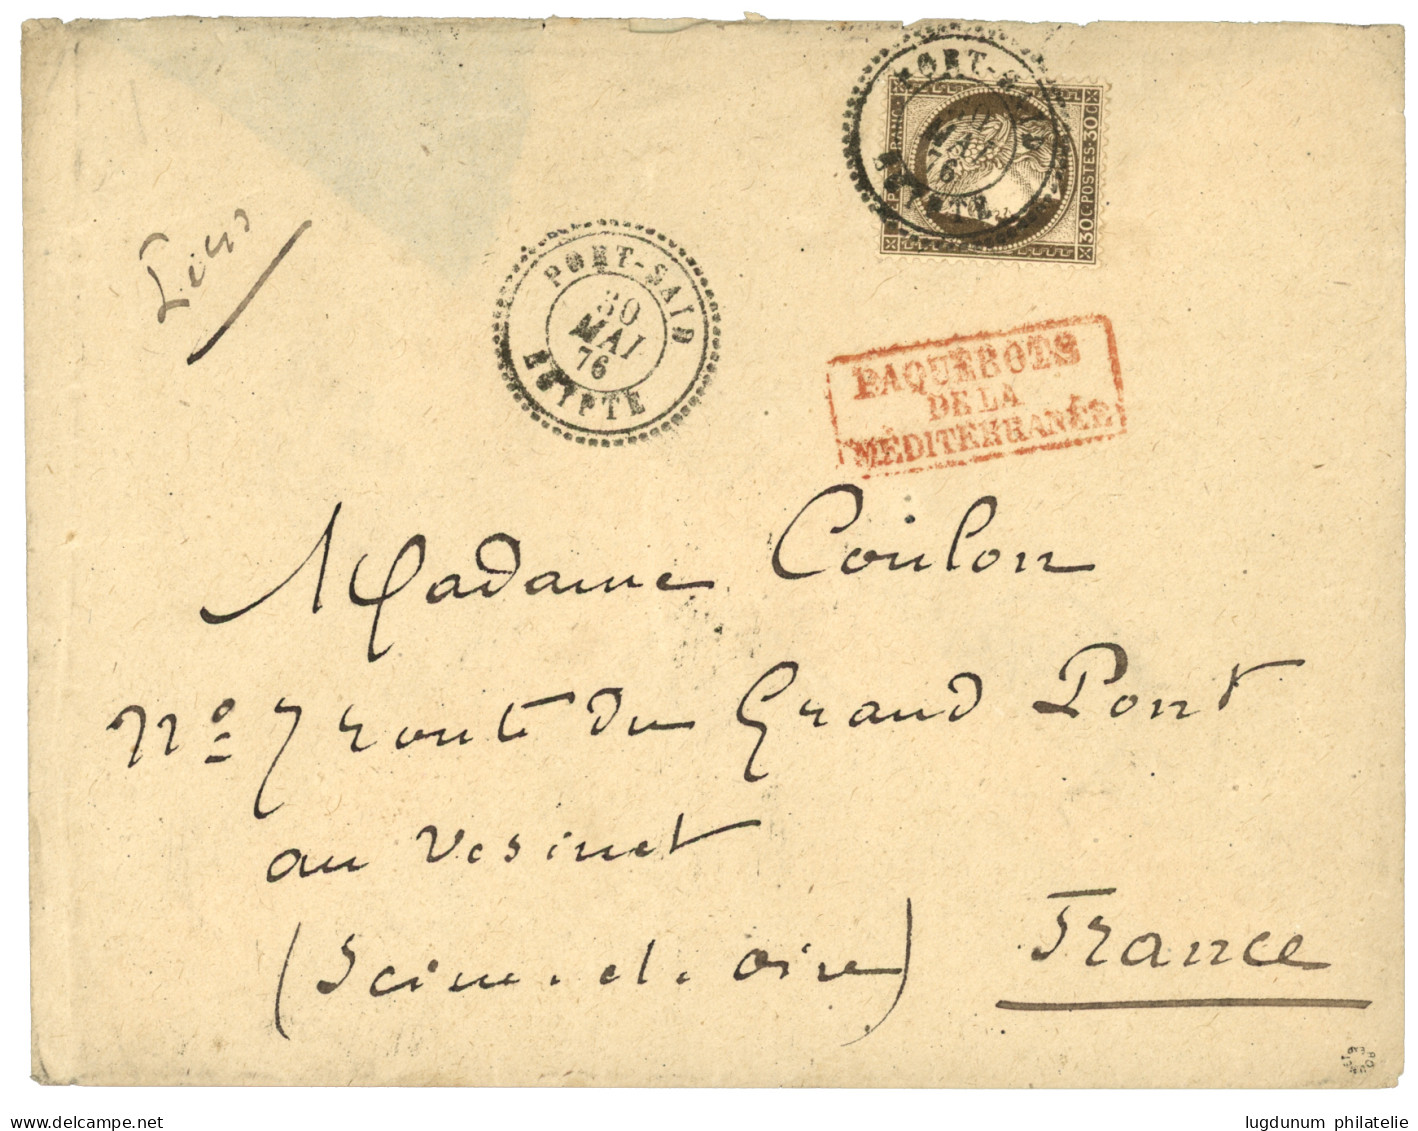 PORT-SAID
30
MAI
76
EGYPTE
30C·POSTES·30C
PORT-SAID
30
MAI
76
EGYPTE
PAQUEBOTS
DE LA
MÉDITERRANÉE
Madame Coulon
Nº 7 route du Grand Pont
au Vesinet
(Seine-et-Oise)
France
lugdunum philatelie